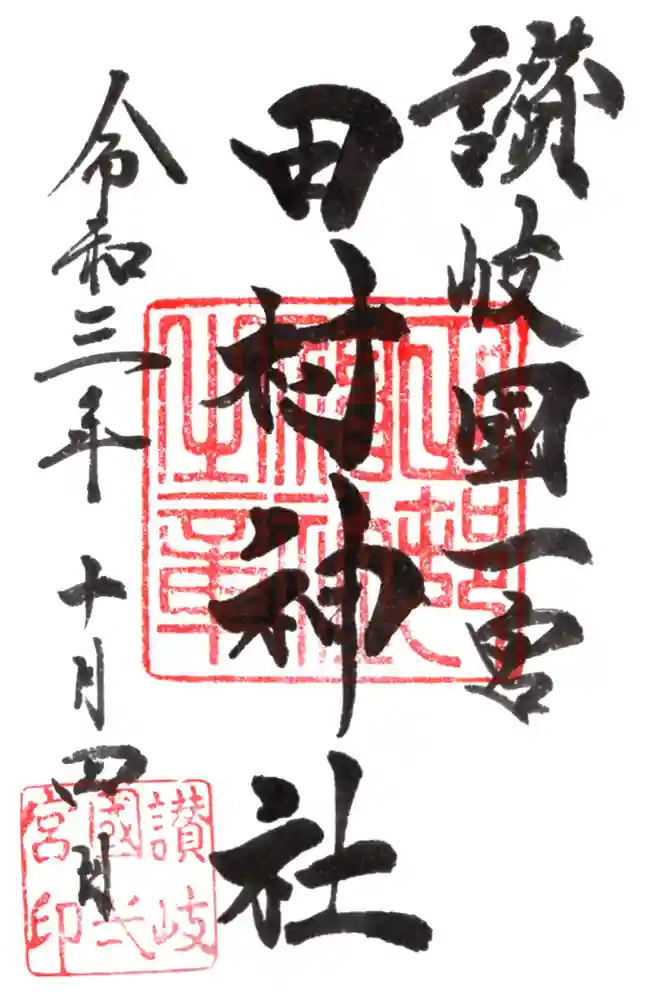 讃岐國一宮
田村神社
令和三年 十月四日
讃岐
國弌
宮印